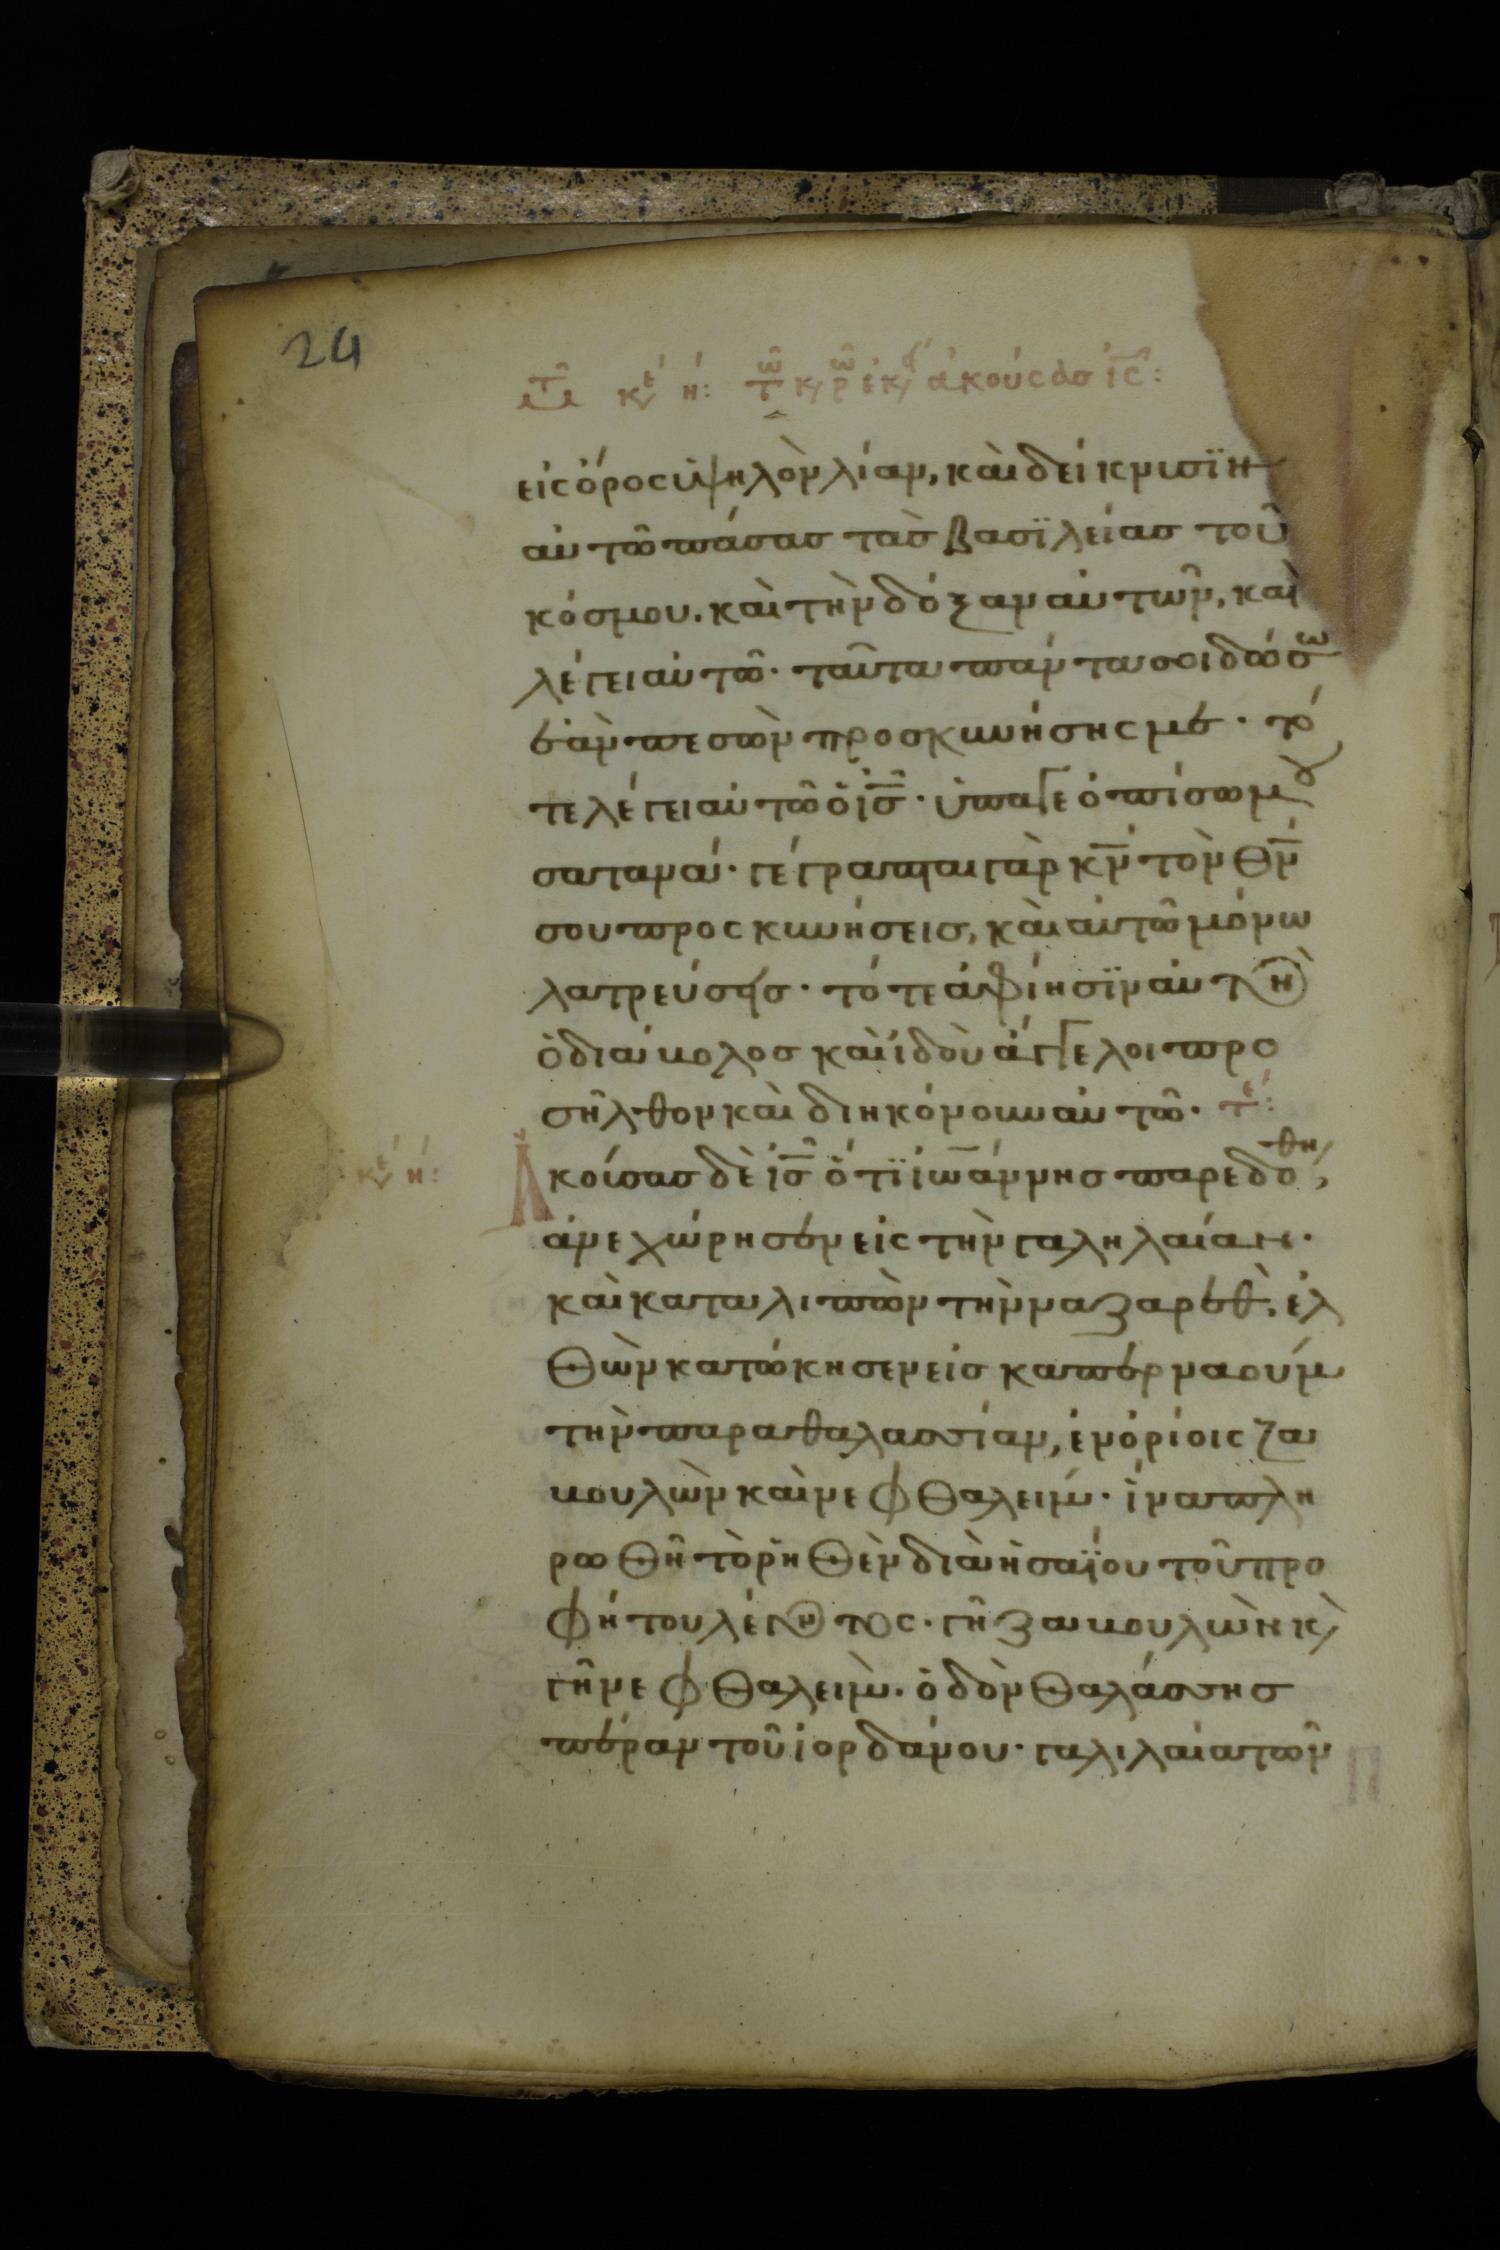 24
κε η: τω κρω εκει ακούσας ὁ ις:
εἰς ὄρος ὑψηλὸν λίαν, καὶ δείκνυσϊν
αὐτῶ πάσας τὰς βασϊλείας τοῦ
κόσμου. καὶ τὴν δόξαν αὐτῶν, καὶ
λέγει αὐτῶ· ταῦτα πάντα σοι δώσω
ἐὰν πεσὼν προσκυνήσης με· τό
τε λέγει αὐτῶ ὁ ἰς̄· ὕπαγε ὀπίσω μου
σατανά· γέγραπται γὰρ κ̄ν τὸν θ̄ν
σου προσκυνήσεις, καὶ αὐτῶ μόνω
λατρεύσης· τότε ἀφίησϊν αὐτὸν
ὁ διάβολος καὶ ἰδοὺ ἄγγελοι προ
σῆλθον καὶ διηκόνουν αὐτῶ· τέ:
κε ή:
Ἀκούσας δὲ ἰς̄ ὅτϊ ἰωάννης παρεδόθη,
ἀνεχώρησεν εἰς τὴν γαληλαίαν·
καὶ καταλιπὼν τὴν ναζαρὲθ, ἐλ
θὼν κατώκησεν εἰς καπέρναούμ
τὴν παραθαλασσίαν, ἐν ὁρίοις ζα
βουλὼν καὶ νεφθαλείμ· ἵνα πλη
ρωθῆ τὸ ῥηθὲν διὰ ἠσαΐου τοῦ προ
φήτου λέγοντος· γῆ ζαβουλὼν κ̀
γῆ νεφθαλεὶμ· ὁδὸν θαλάσσης
πέραν τοῦ ἰορδάνου· γαλιλαία τῶν